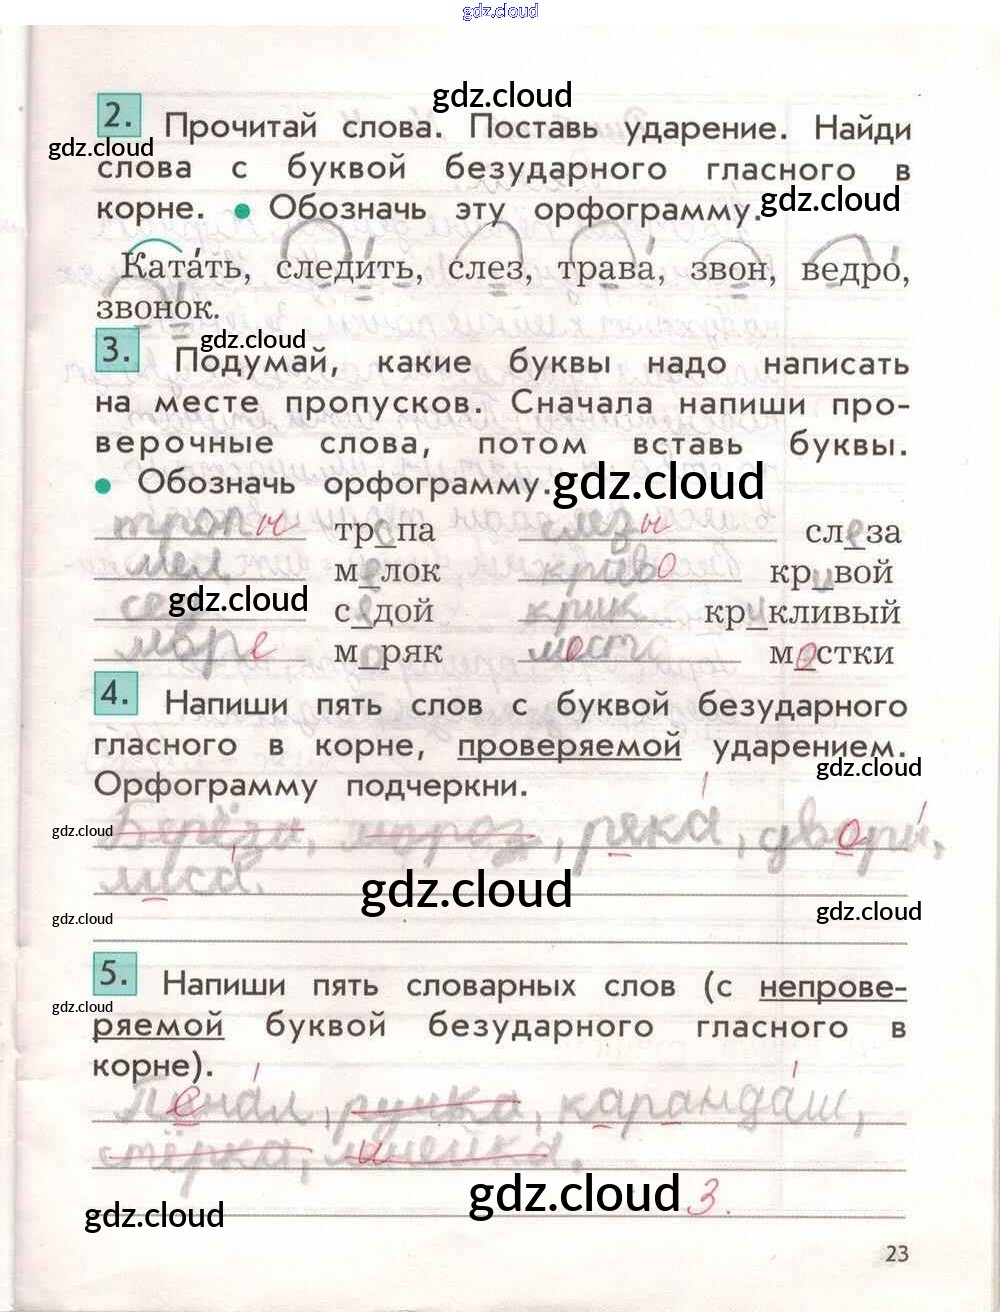 gdz.cloud
gdz.cloud
2. Прочитай слова. Поставь ударение. Найди
gdz.cloud
слова с буквой безударного гласного в
корне. • Обозначь эту орфограмму.
gdz.cloud
Ката́ть, следи́ть, слез, трава́, звон, ведро́,
звонок.
3.
gdz.cloud
Подумай, какие буквы надо написать
на месте пропусков. Сначала напиши про-
верочные слова, потом вставь буквы.
• Обозначь орфограмму.
gdz.cloud
тропы тропа слезы слеза
мел мелок криво кривой
сед седой крик крикливый
gdz.cloud
море моряк место мостки
4. Напиши пять слов с буквой безударного
гласного в корне, проверяемой ударением.
gdz.cloud
Орфограмму подчеркни.
gdz.cloud
Берёза, мороз, ряка́, дворы́,
лиса́.
gdz.cloud
gdz.cloud
gdz.cloud
5. Напиши пять словарных слов (с непрове-
gdz.cloud
ряемой буквой безударного гласного в
корне).
Пена́л, ручка, каранда́ш,
стёрка, линейка.
gdz.cloud
3.
gdz.cloud
23